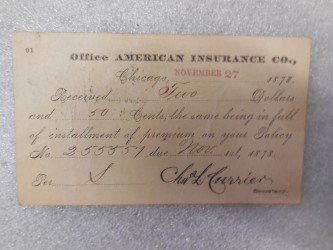 91
Office AMERICAN INSURANCE CO.,
Chicago, NOVEMBER 27 1878.
Received Two Dollars
and 50 Cents, the same being in full
of installment of premium on your Policy
No. 255557 due Nov. 1st, 1878.
Per S Chas L Currier
Secretary.